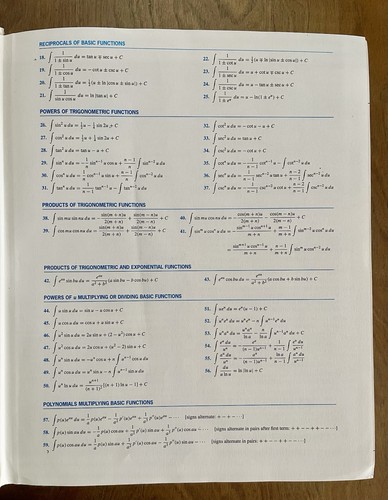 RECIPROCALS OF BASIC FUNCTIONS
18. ∫ 1/(1 ± sin u) du = tan u ∓ sec u + C
19. ∫ 1/(1 ± cos u) du = −cot u ± csc u + C
20. ∫ 1/(1 ± tan u) du = ½(u ± ln |cos u ± sin u|) + C
21. ∫ 1/(sin u cos u) du = ln |tan u| + C
22. ∫ 1/(1 ± cot u) du = ½(u ∓ ln |sin u ± cos u|) + C
23. ∫ 1/(1 ± sec u) du = u + cot u ∓ csc u + C
24. ∫ 1/(1 ± csc u) du = u − tan u ± sec u + C
25. ∫ 1/(1 ± eᵘ) du = u − ln(1 ± eᵘ) + C
POWERS OF TRIGONOMETRIC FUNCTIONS
26. ∫ sin² u du = ½u − ¼ sin 2u + C
27. ∫ cos² u du = ½u + ¼ sin 2u + C
28. ∫ tan² u du = tan u − u + C
29. ∫ sinⁿ u du = −(1/n) sinⁿ⁻¹ u cos u + ((n−1)/n) ∫ sinⁿ⁻² u du
30. ∫ cosⁿ u du = (1/n) cosⁿ⁻¹ u sin u + ((n−1)/n) ∫ cosⁿ⁻² u du
31. ∫ tanⁿ u du = (1/(n−1)) tanⁿ⁻¹ u − ∫ tanⁿ⁻² u du
32. ∫ cot² u du = −cot u − u + C
33. ∫ sec² u du = tan u + C
34. ∫ csc² u du = −cot u + C
35. ∫ cotⁿ u du = −(1/(n−1)) cotⁿ⁻¹ u − ∫ cotⁿ⁻² u du
36. ∫ secⁿ u du = (1/(n−1)) secⁿ⁻² u tan u + ((n−2)/(n−1)) ∫ secⁿ⁻² u du
37. ∫ cscⁿ u du = −(1/(n−1)) cscⁿ⁻² u cot u + ((n−2)/(n−1)) ∫ cscⁿ⁻² u du
PRODUCTS OF TRIGONOMETRIC FUNCTIONS
38. ∫ sin mu sin nu du = −sin(m + n)u/(2(m + n)) + sin(m − n)u/(2(m − n)) + C
39. ∫ cos mu cos nu du = sin(m + n)u/(2(m + n)) + sin(m − n)u/(2(m − n)) + C
40. ∫ sin mu cos nu du = −cos(m + n)u/(2(m + n)) − cos(m − n)u/(2(m − n)) + C
41. ∫ sinᵐ u cosⁿ u du = −(sinᵐ⁻¹ u cosⁿ⁺¹ u)/(m + n) + ((m − 1)/(m + n)) ∫ sinᵐ⁻² u cosⁿ u du
= (sinᵐ⁺¹ u cosⁿ⁻¹ u)/(m + n) + ((n − 1)/(m + n)) ∫ sinᵐ u cosⁿ⁻² u du
PRODUCTS OF TRIGONOMETRIC AND EXPONENTIAL FUNCTIONS
42. ∫ eᵃᵘ sin bu du = (eᵃᵘ/(a² + b²))(a sin bu − b cos bu) + C
43. ∫ eᵃᵘ cos bu du = (eᵃᵘ/(a² + b²))(a cos bu + b sin bu) + C
POWERS OF u MULTIPLYING OR DIVIDING BASIC FUNCTIONS
44. ∫ u sin u du = sin u − u cos u + C
45. ∫ u cos u du = cos u + u sin u + C
46. ∫ u² sin u du = 2u sin u + (2 − u²) cos u + C
47. ∫ u² cos u du = 2u cos u + (u² − 2) sin u + C
48. ∫ uⁿ sin u du = −uⁿ cos u + n ∫ uⁿ⁻¹ cos u du
49. ∫ uⁿ cos u du = uⁿ sin u − n ∫ uⁿ⁻¹ sin u du
50. ∫ uⁿ ln u du = (uⁿ⁺¹/(n + 1)²)[(n + 1) ln u − 1] + C
51. ∫ ueᵘ du = eᵘ(u − 1) + C
52. ∫ uⁿeᵘ du = uⁿeᵘ − n ∫ uⁿ⁻¹eᵘ du
53. ∫ uⁿaᵘ du = uⁿaᵘ/ln a − (n/ln a) ∫ uⁿ⁻¹aᵘ du + C
54. ∫ eᵘ du/uⁿ = −eᵘ/((n − 1)uⁿ⁻¹) + (1/(n − 1)) ∫ eᵘ du/uⁿ⁻¹
55. ∫ aᵘ du/uⁿ = −aᵘ/((n − 1)uⁿ⁻¹) + (ln a/(n − 1)) ∫ aᵘ du/uⁿ⁻¹
56. ∫ du/(u ln u) = ln |ln u| + C
POLYNOMIALS MULTIPLYING BASIC FUNCTIONS
57. ∫ p(u)eᵃᵘ du = (1/a)p(u)eᵃᵘ − (1/a²)p′(u)eᵃᵘ + (1/a³)p″(u)eᵃᵘ − ··· [signs alternate: + − + − ···]
58. ∫ p(u) sin au du = −(1/a)p(u) cos au + (1/a²)p′(u) sin au + (1/a³)p″(u) cos au − ··· [signs alternate in pairs after first term: + + − − + + − − ···]
59. ∫ p(u) cos au du = (1/a)p(u) sin au + (1/a²)p′(u) cos au − (1/a³)p″(u) sin au − ··· [signs alternate in pairs: + + − − + + − − ···]